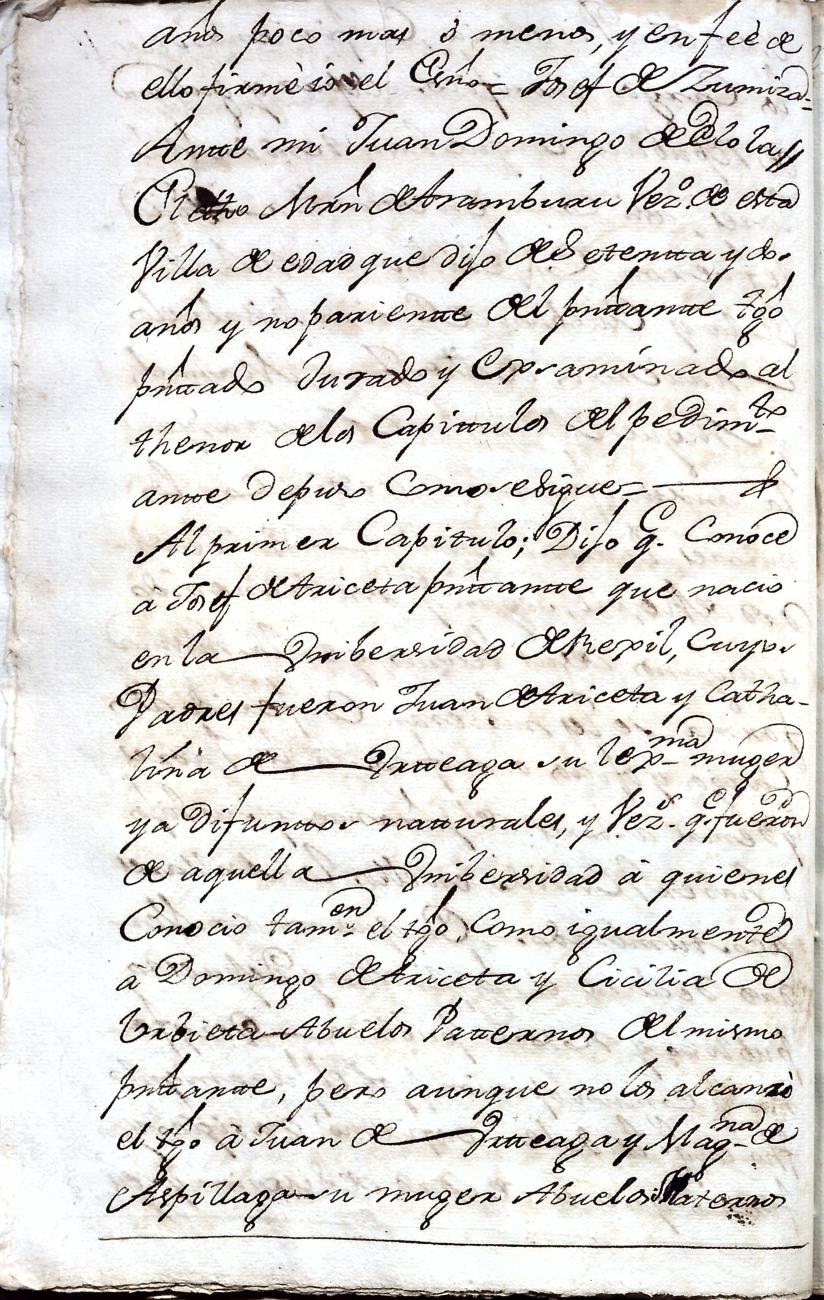 años poco mas ò menos, y en feè de
ello firmè io el Esño = Josef de Zumiza-
Ante mi Juan Domingo de Olola//
El dho Mrñ de Aramburu Vezº. de esta
Villa de edad que dijo de Setentta y dos
años y no pariente del pñttante tgô
pñttado Jurado y Expsaminado al
thenor de los Capittulos del pedimto
ante depuso Como se sigue =
Al primer Capitulo; Dijo q. Conoce
à Josef de Ariceta pñttante que nacio
en la Unibersidad de Rexil, Cuyos
Padres fueron Juan de Ariceta y Catha-
lina de Urtteaga su lexma muger
ya difunttos natturales, y Vezs. q. fueron
de aquella Unibersidad à quienes
Conocio tamen el tgô, Como igualmente
à Domingo de Ariceta y Cicilia de
Urbieta Abuelos Patternos del mismo
pñttante, pero aunque no los alcanzò
el tgô à Juan de Urtteaga y Magna de
Aspillaga su muger Abuelos Maternos